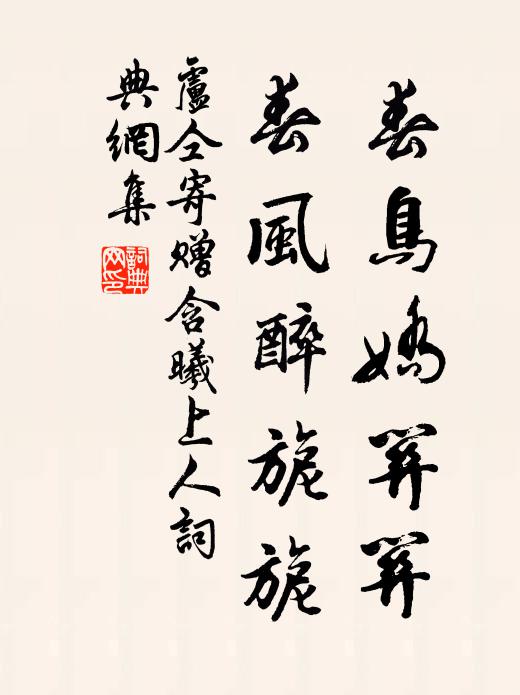 春鳥嬌關關
春風醉旎旎
盧仝寄贈含曦上人詞
典網集
詞典
网印